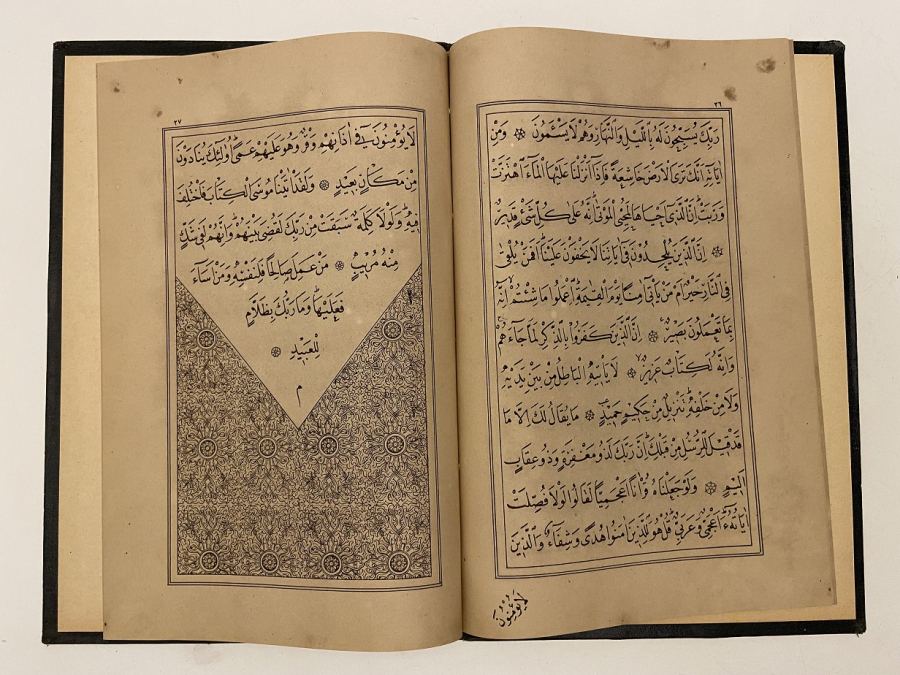 ٢٦
رَبِّكَ يُسَبِّحُونَ لَهُ بِاللَّيْلِ وَالنَّهَارِ وَهُمْ لَا يَسْئَمُونَ ۞ وَمِنْ
اٰيَاتِهٖ اَنَّكَ تَرَى الْاَرْضَ خَاشِعَةً فَاِذَا اَنْزَلْنَا عَلَيْهَا الْمَآءَ اهْتَزَّتْ
وَرَبَتْ اِنَّ الَّذٖى اَحْيَاهَا لَمُحْيِ الْمَوْتٰى اِنَّهُ عَلٰى كُلِّ شَيْءٍ قَدٖيرٌ
۞ اِنَّ الَّذٖينَ يُلْحِدُونَ فٖى اٰيَاتِنَا لَا يَخْفَوْنَ عَلَيْنَا اَفَمَنْ يُلْقٰى
فِى النَّارِ خَيْرٌ اَمْ مَنْ يَاْتٖى اٰمِنًا يَوْمَ الْقِيٰمَةِ اِعْمَلُوا مَا شِئْتُمْ اِنَّهُ
بِمَا تَعْمَلُونَ بَصٖيرٌ ۞ اِنَّ الَّذٖينَ كَفَرُوا بِالذِّكْرِ لَمَّا جَآءَهُمْ
وَاِنَّهُ لَكِتَابٌ عَزٖيزٌ ۞ لَا يَاْتٖيهِ الْبَاطِلُ مِنْ بَيْنِ يَدَيْهِ
وَلَا مِنْ خَلْفِهٖ تَنْزٖيلٌ مِنْ حَكٖيمٍ حَمٖيدٍ ۞ مَا يُقَالُ لَكَ اِلَّا مَا
قَدْ قٖيلَ لِلرُّسُلِ مِنْ قَبْلِكَ اِنَّ رَبَّكَ لَذُو مَغْفِرَةٍ وَذُو عِقَابٍ
اَلٖيمٍ ۞ وَلَوْ جَعَلْنَاهُ قُرْاٰنًا اَعْجَمِيًّا لَقَالُوا لَوْلَا فُصِّلَتْ
اٰيَاتُهُ ءَاَعْجَمِىٌّ وَعَرَبِىٌّ قُلْ هُوَ لِلَّذٖينَ اٰمَنُوا هُدًى وَشِفَآءٌ وَالَّذٖينَ
لَا يُؤْمِنُونَ
٢٧
لَا يُؤْمِنُونَ فٖى اٰذَانِهِمْ وَقْرٌ وَهُوَ عَلَيْهِمْ عَمًى اُولٰئِكَ يُنَادَوْنَ
مِنْ مَكَانٍ بَعٖيدٍ ۞ وَلَقَدْ اٰتَيْنَا مُوسَى الْكِتَابَ فَاخْتُلِفَ
فٖيهِ وَلَوْلَا كَلِمَةٌ سَبَقَتْ مِنْ رَبِّكَ لَقُضِىَ بَيْنَهُمْ وَاِنَّهُمْ لَفٖى شَكٍّ
مِنْهُ مُرٖيبٍ ۞ مَنْ عَمِلَ صَالِحًا فَلِنَفْسِهٖ وَمَنْ اَسَآءَ
فَعَلَيْهَا وَمَا رَبُّكَ بِظَلَّامٍ
لِلْعَبٖيدِ ۞
م